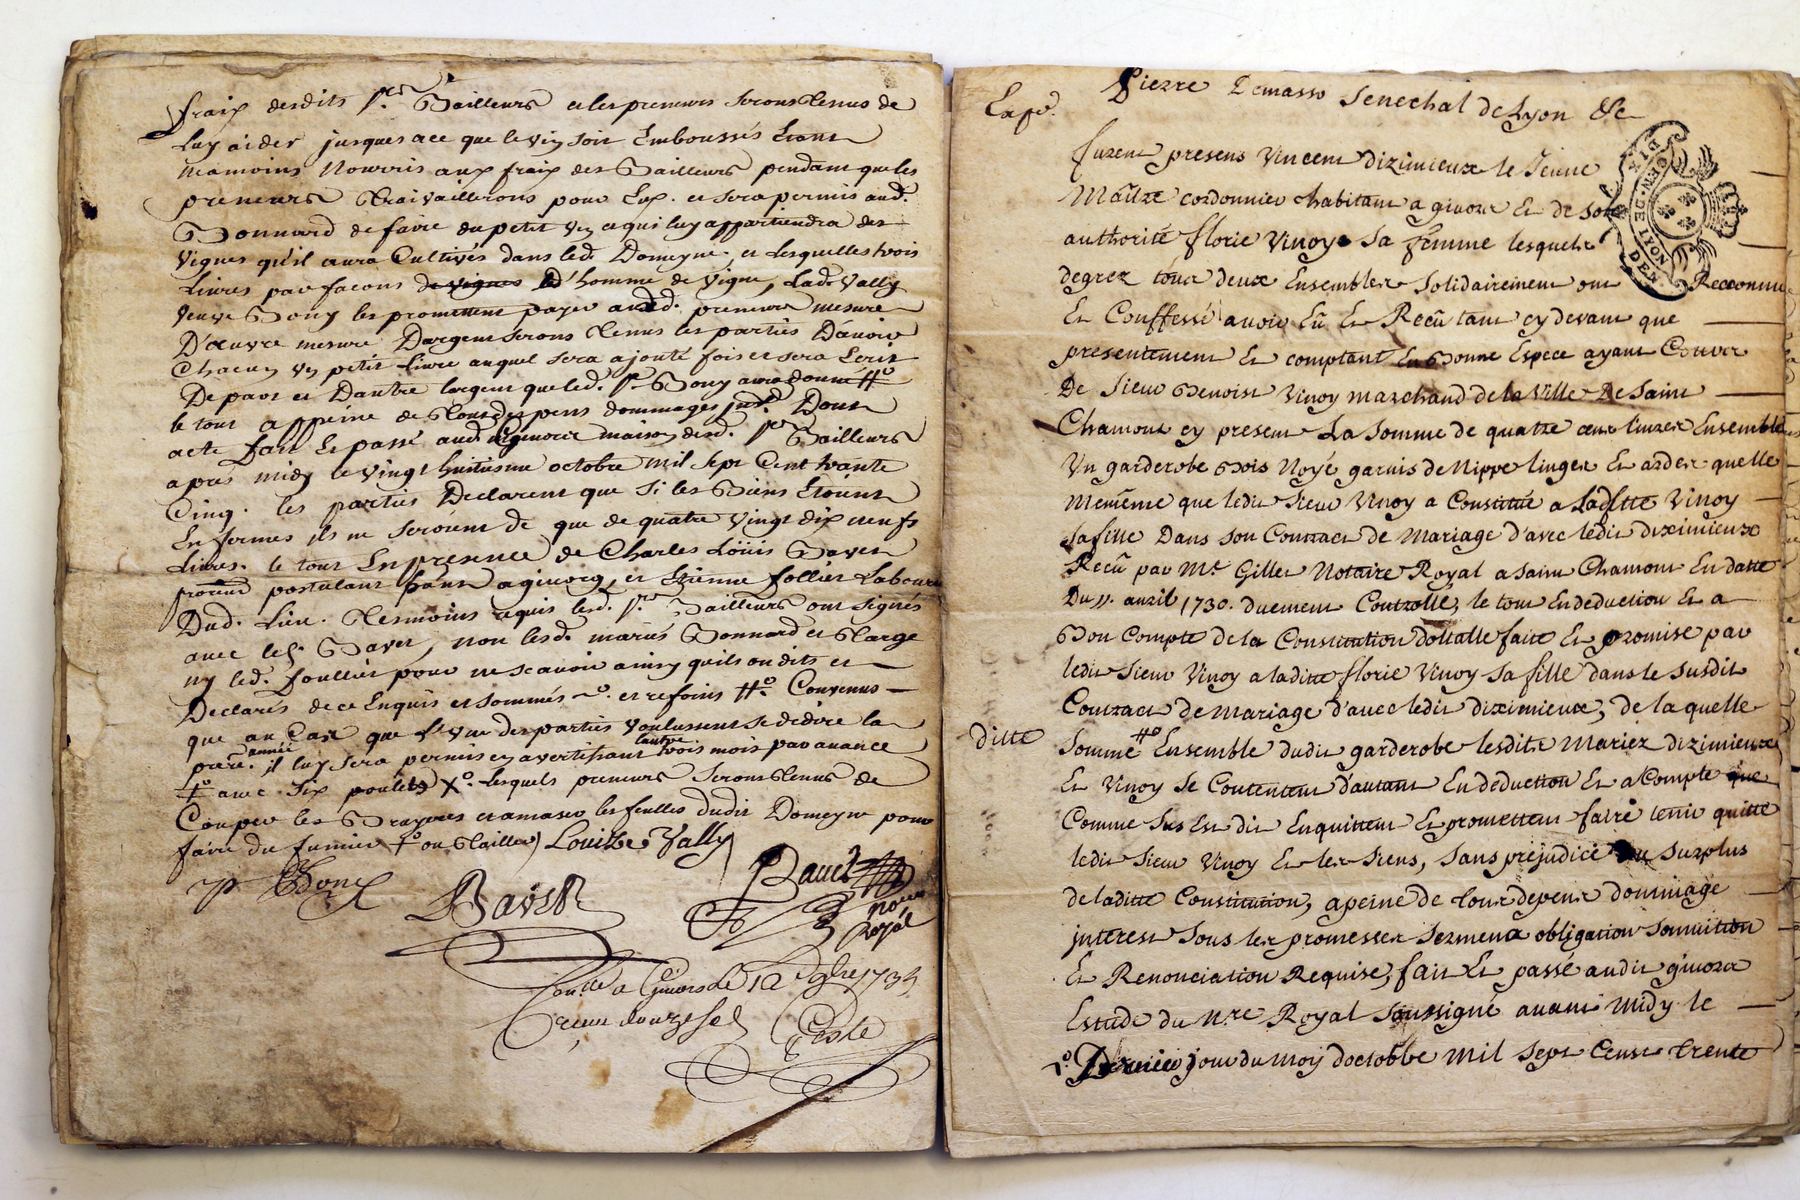 fraix desdits Srs Bailleurs et les preneurs seront tenus de
luy aider jusques a ce que le vin soit Emboussés Etant
neamoins Nourris aux fraix des Bailleurs pendant que les
preneurs travailleront pour Eux. et sera permis aud.
Bonnard de faire du petit vin a qui luy appartiendra des
Vignes qu'il aura Cultivés dans led. Domeyne, et lesquelles trois
Livres par facons d'homme de Vigne, Lad. Vally
veuve Bony les promettent payer aud. preneur mesure
D'œuvre mesure D'argent seront tenus les parties D'avoir
Chacun un petit Livre auquel sera ajouté fois et sera Ecrit
De part et D'autre l'argent que led. Sr Bony aura donné
le tout a peine de tous despens dommages Dont
acte fait Et passé aud. givorz maison desd. Srs Bailleurs
apres midy le vingt huitiesme octobre mil sept Cent trante
Cinq. les parties Declarent que si les Biens Etoient
En fermes ils ne seroient de que de quatre vingt dix neufs
Livres. le tout En presence de Charles Loüis Bavet
postulant a givorz, et Etienne follier Laboureur
Dud. Lieu. Tesmoins requis lesd. Srs Bailleurs ont signés
avec led. Bavet, non lesd. mariés Bonnard et targe
ny led. foullier pour ne scavoir ainsy quils ont dits et
Declarés de ce Enquis et sommés et refais Convenus
que au Cas que l'une des parties voulussent se dedire la
année
lautre
il luy sera permis en avertissant trois mois par avance
avec six poulets X lesquels preneurs seront tenus de
Couper les Brayeres et amaser les feulles dudit Domeyne pour
faire du fumier ou tailler) Louise Vally
Bony
Bavet
Bavet
Royal
Conllé a Givors le 12 9bre 1735
Receu douze sols
Expé.
Pierre Demasso Senechal de Lyon &c
GEN. DE LYON
furent presens Vincent dizimieux le Jeune
Maître cordonnier habitant a givorz Et de son
authorité florie Vinoy sa femme lesquels
degrez tous deux Ensembles Solidairement ont Reconnu
Et Conffessé avoir Eû Et Reçû tant cy devant que
presentement Et comptant En Bonne Espece ayant Cours
De Sieur Benoist Vinoy marchand de la Ville De Saint
Chamont cy present La Somme de quatre cent livres Ensemble
Un garderobe Bois Noyé garnis de Nippe linger Et arder quelle
Memême que ledit Sieur Vinoy a Constitué a Laditte Vinoy
sa fille Dans son Contract de Mariage d'avec ledit diximieux
Reçû par Me. Gillet Notaire Royal a Saint Chamont En datte
Du 11. avril 1730. duement Controllé, le tout En deduction Et a
Bon Compte de la Constitution dottalle faitte Et promise par
ledit Sieur Vinoy a laditte florie Vinoy sa fille dans le susdit
Contract de Mariage d'avec ledit diximieux, de la quelle
ditte
Somme Ensemble dudit garderobe lesdits Mariez dizimieux
Et Vinoy se Contentent d'autant En deduction Et a Compte que
Comme sus Est dit Enquittent Et promettent faire tenir quitte
ledit Sieur Vinoy Et les Siens, sans prejudice du surplus
de laditte Constitution, a peine de tous depens dommage
jnterest sous les promesses sermens obligation soumition
Et Renonciation Requise, fait Et passé audit givorz
Estude du Nre. Royal soussigné avant Midy le
Dernier jour du Moy doctobbe Mil Sept Cent trente